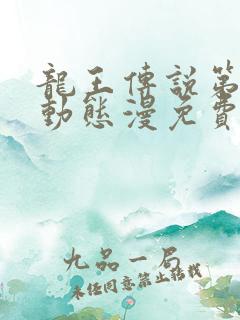 龍王傳說第
動態漫免費
九品一局
未經同意禁止轉載